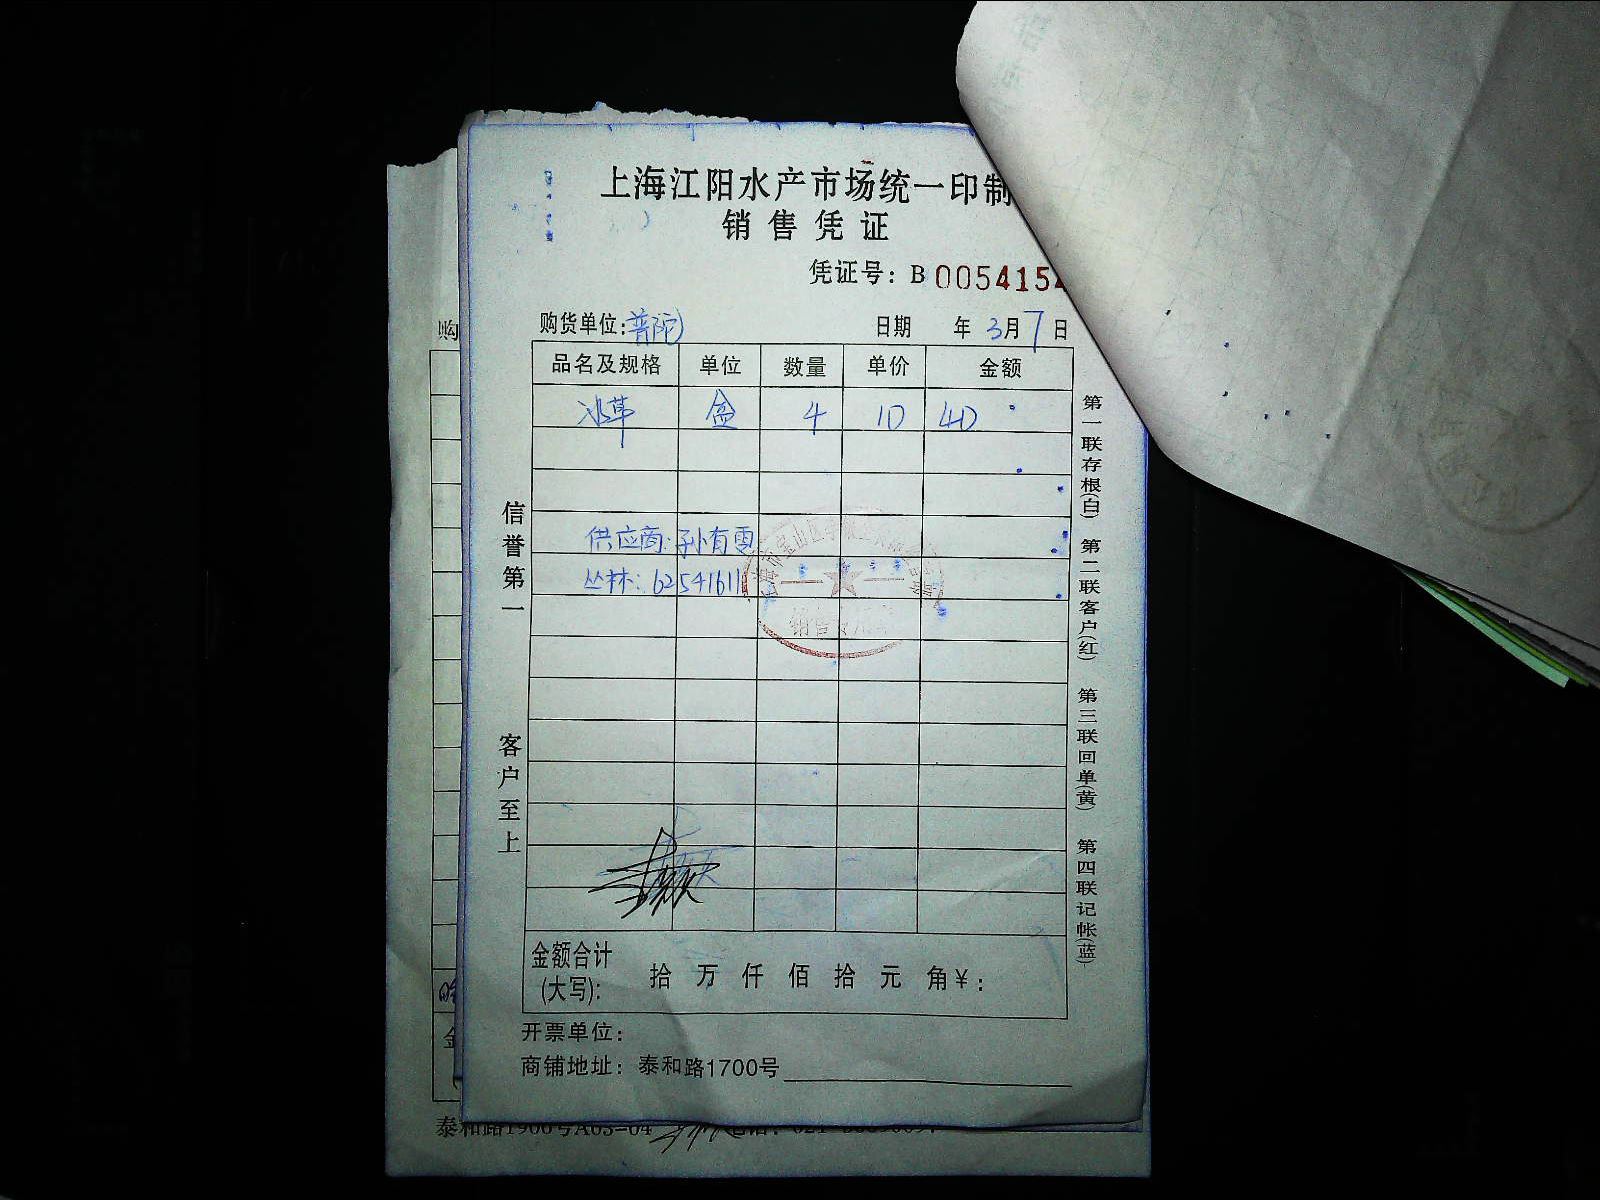 上海江阳水产市场统一印制
销售凭证
凭证号：B 005415
购货单位：普陀 日期 年 3月7日
品名及规格 单位 数量 单价 金额
冰草 盒 4 10 40
供应商：孙有雪
丛林：62541611
销售专用章
金额合计(大写)： 拾 万 仟 佰 拾 元 角 ¥：
开票单位：
商铺地址：泰和路1700号
信誉第一
客户至上
第一联存根(白) 第二联客户(红) 第三联回单(黄) 第四联记帐(蓝)
购
金
泰和路1900号A03-04